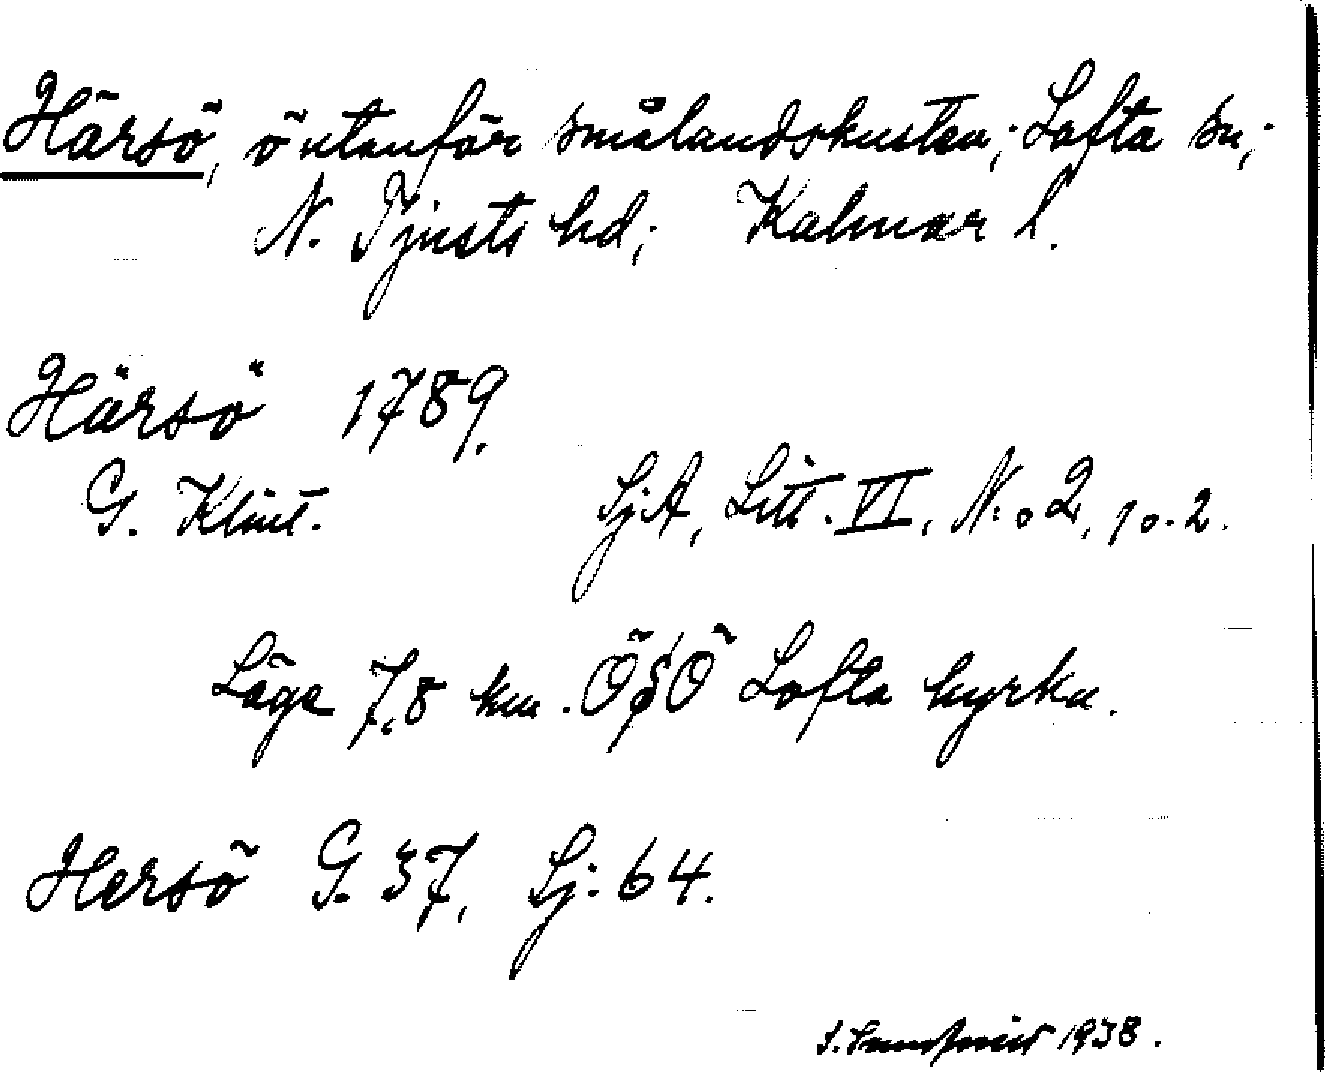 Härsö, ö utanför smålandskusten; Lofta sn;
N. Tjusts hd; Kalmar l.
Härsö 1789.
G. Klint. SjA, Litt. VI, N:o 2, 1 o. 2.
Läge 7,8 km. ÖSÖ Lofta kyrka.
Hersö G. 37, Sj. 64.
1938.